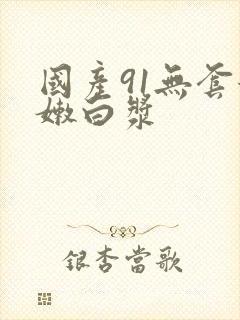 國產91無套
嫩白漿
銀杏當歌